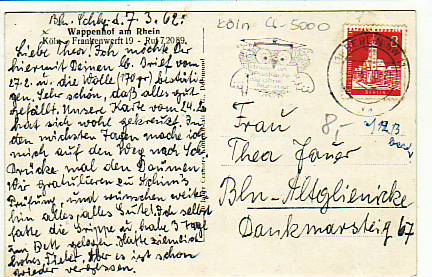 Bln. Schbg. d. 7.3.62.
Wappenhof am Rhein
Köln · Frankenwerft 19 - Ruf 72089.
Liebe Thea! Ich möchte Dir
hiermit Deinen lb. Brief vom
27.2. u. die Wolle (170 gr) bestäti-
gen. Sehr schön, daß alles gut
gefällt. Unsere Karte vom 24.2.
hat sich wohl gekreuzt. In
den nächsten Tagen mache ich
mich auf den Weg nach
Drücke mal den Daumen.
Wir gratulieren zu
Prüfung, und wünschen weiter-
hin alles, alles Gute! Ich selbst
hatte die Grippe u. habe 3 Tage
im Bett gelegen. Hatte ziemlich
hohes Fieber. Aber es ist schon
wieder vergessen.
Köln CL-5000
BERLIN
8,-
Frau
Thea Jauer
Bln-Altglienicke
Dankmarsteig 67